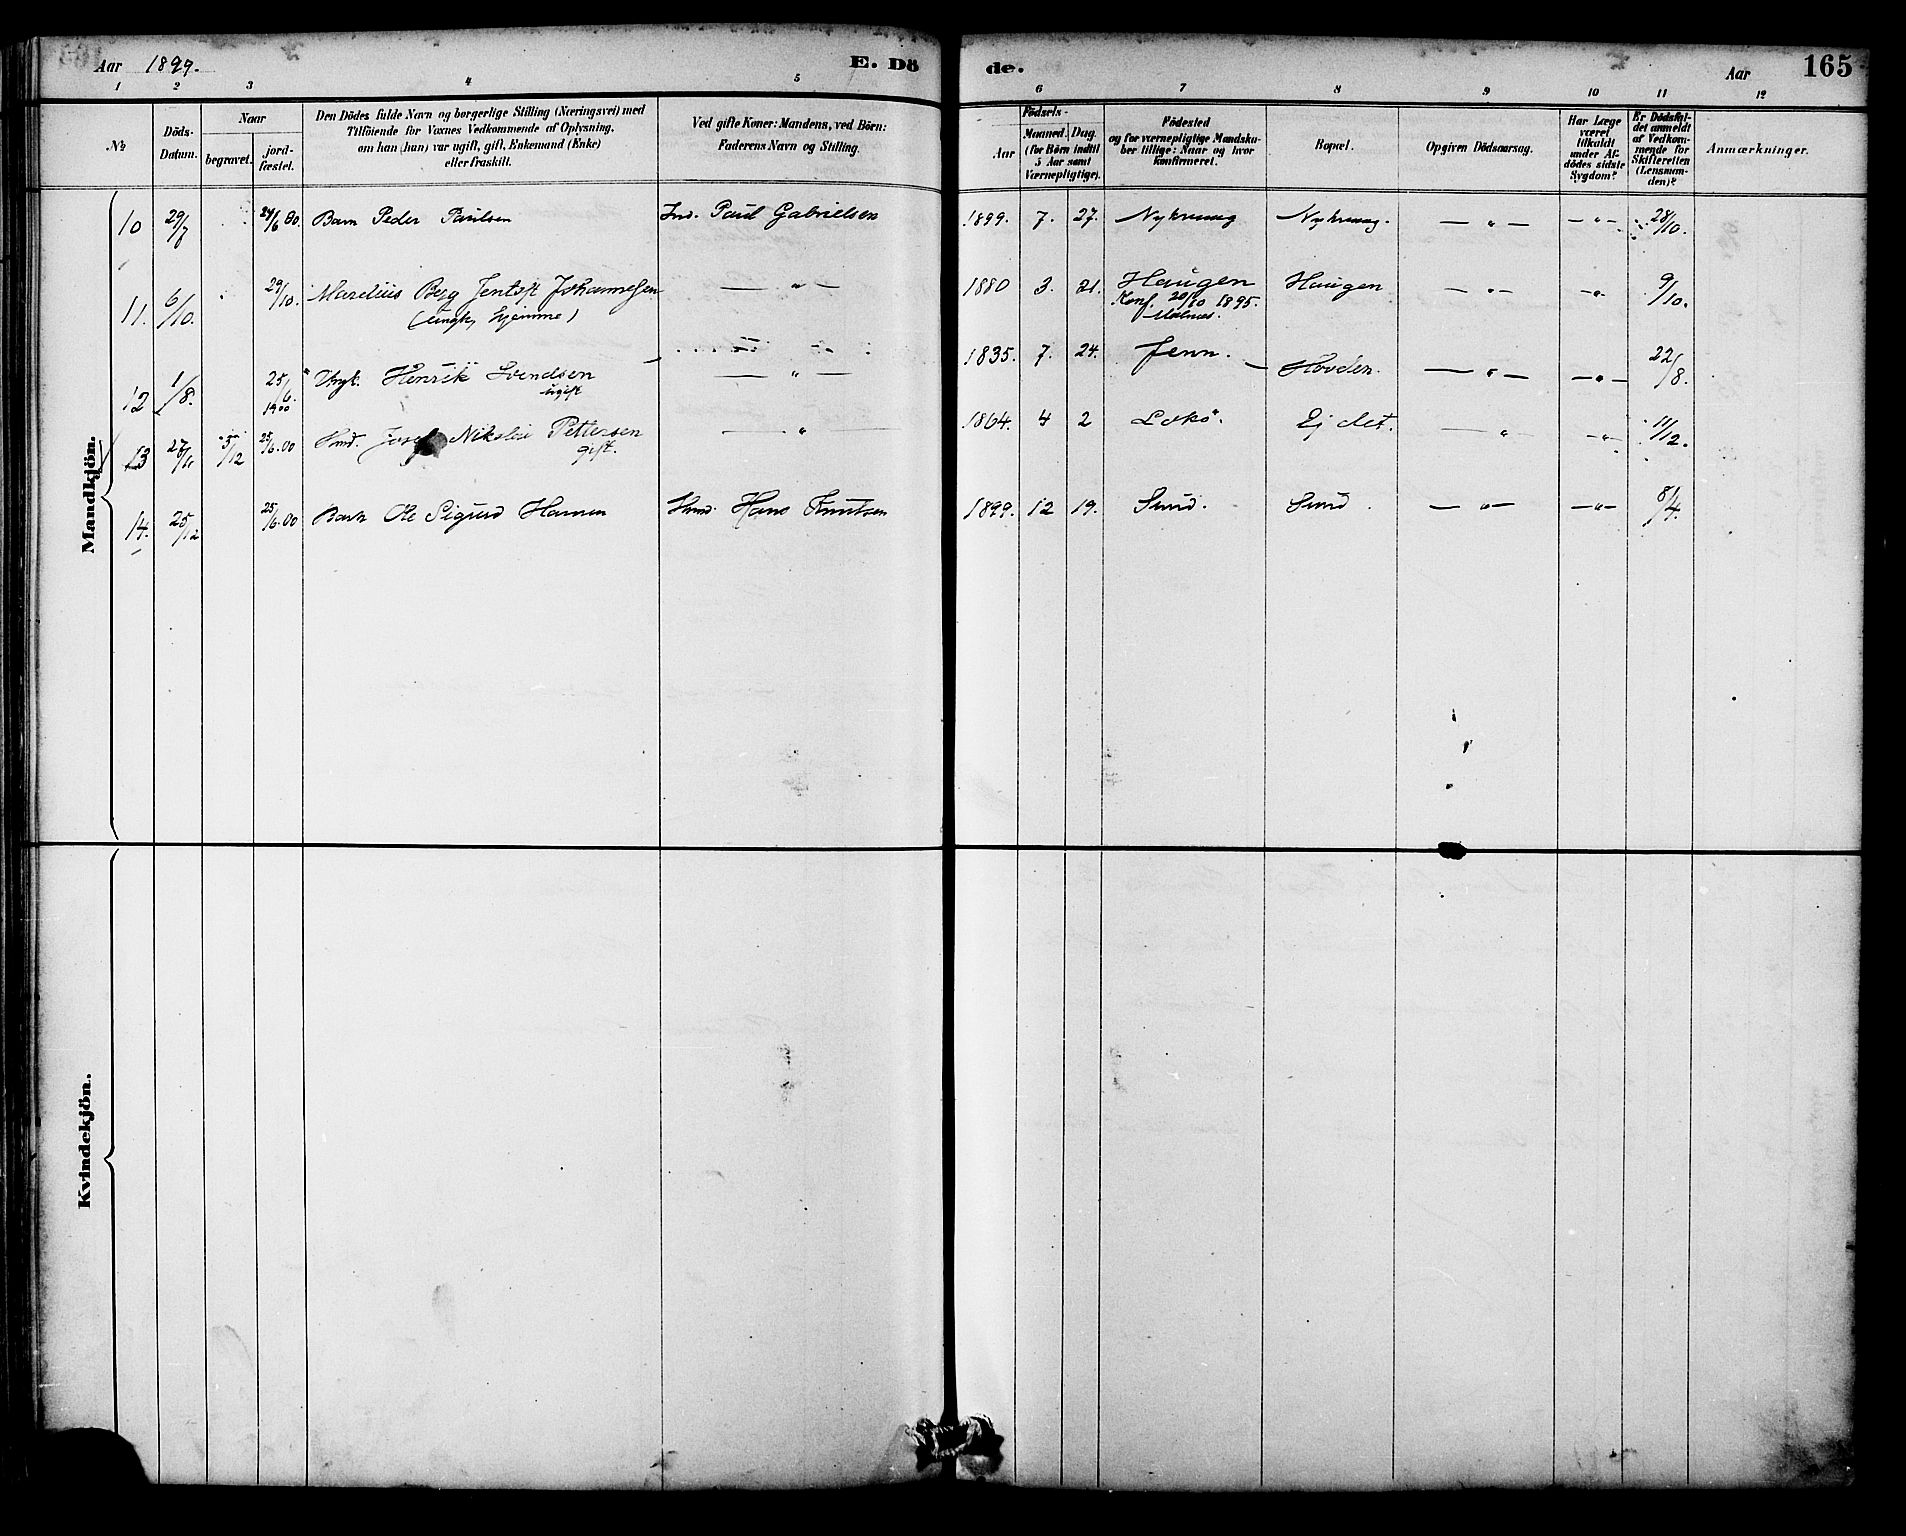 Aar 1899. E. Dö de. Aar 165
1 2 3 4 5 6 7 8 9 10 11 12
№
Döds-Datum.
Naar
begravet.
jord-fæstet.
Den Dödes fulde Navn og borgerlige Stilling (Næringsvei) med
Tilföiende for Voxnes Vedkommende af Oplysning,
om han (hun) var ugift, gift, Enkemand (Enke)
eller fraskilt.
Ved gifte Koner: Mandens, ved Börn:
Faderens Navn og Stilling.
Födsels-
Aar
Maaned. Dag.
(for Börn indtil
5 Aar samt
Værnepligtige).
Födested
og for værnepligtige Mandskaber tillige: Naar og hvor
konfirmeret.
Bopæl.
Opgiven Dödsaarsag.
Har Læge
været
tilkaldt
under Afdödes sidste
Sygdom?
Er Dödsfaldet anmeldt
af Vedkommende for
Skifteretten
(Lensmanden)?
Anmærkninger.
Mandkjön.
10 29/7 24/6 00. Barn Peder Paulsen Ind. Paul Gabrielsen 1899. 7. 27. Nykvaag Nykvaag. — " — — " — 28/10.
11. 6/10. 29/10. Marelius Berg Jentoft Johannesen — " — 1880 3. 21. Haugen Haugen — " — — " — 9/10.
(Ungk, hjemme) Konf. 20/10 1895.
Malnæs.
12 1/8. 25/6. 1900 Ungk. Henrik Svendsen — " — 1835. 7. 24. Jenn. Hovden. — " — — " — 22/8.
ugift
13 27/11 5/12 25/6.00 Hmd. Josef Nikolai Pettersen — " — 1864. 4 2 Ej det. — " — — " — 11/12.
gift.
14. 25/12 25/6.00 Barn Ole Sigurd Hansen Hmd. Hans Knutsen 1899. 12 19. Sund. Sund. — " — — " — 8/4.
Kvindekjön.